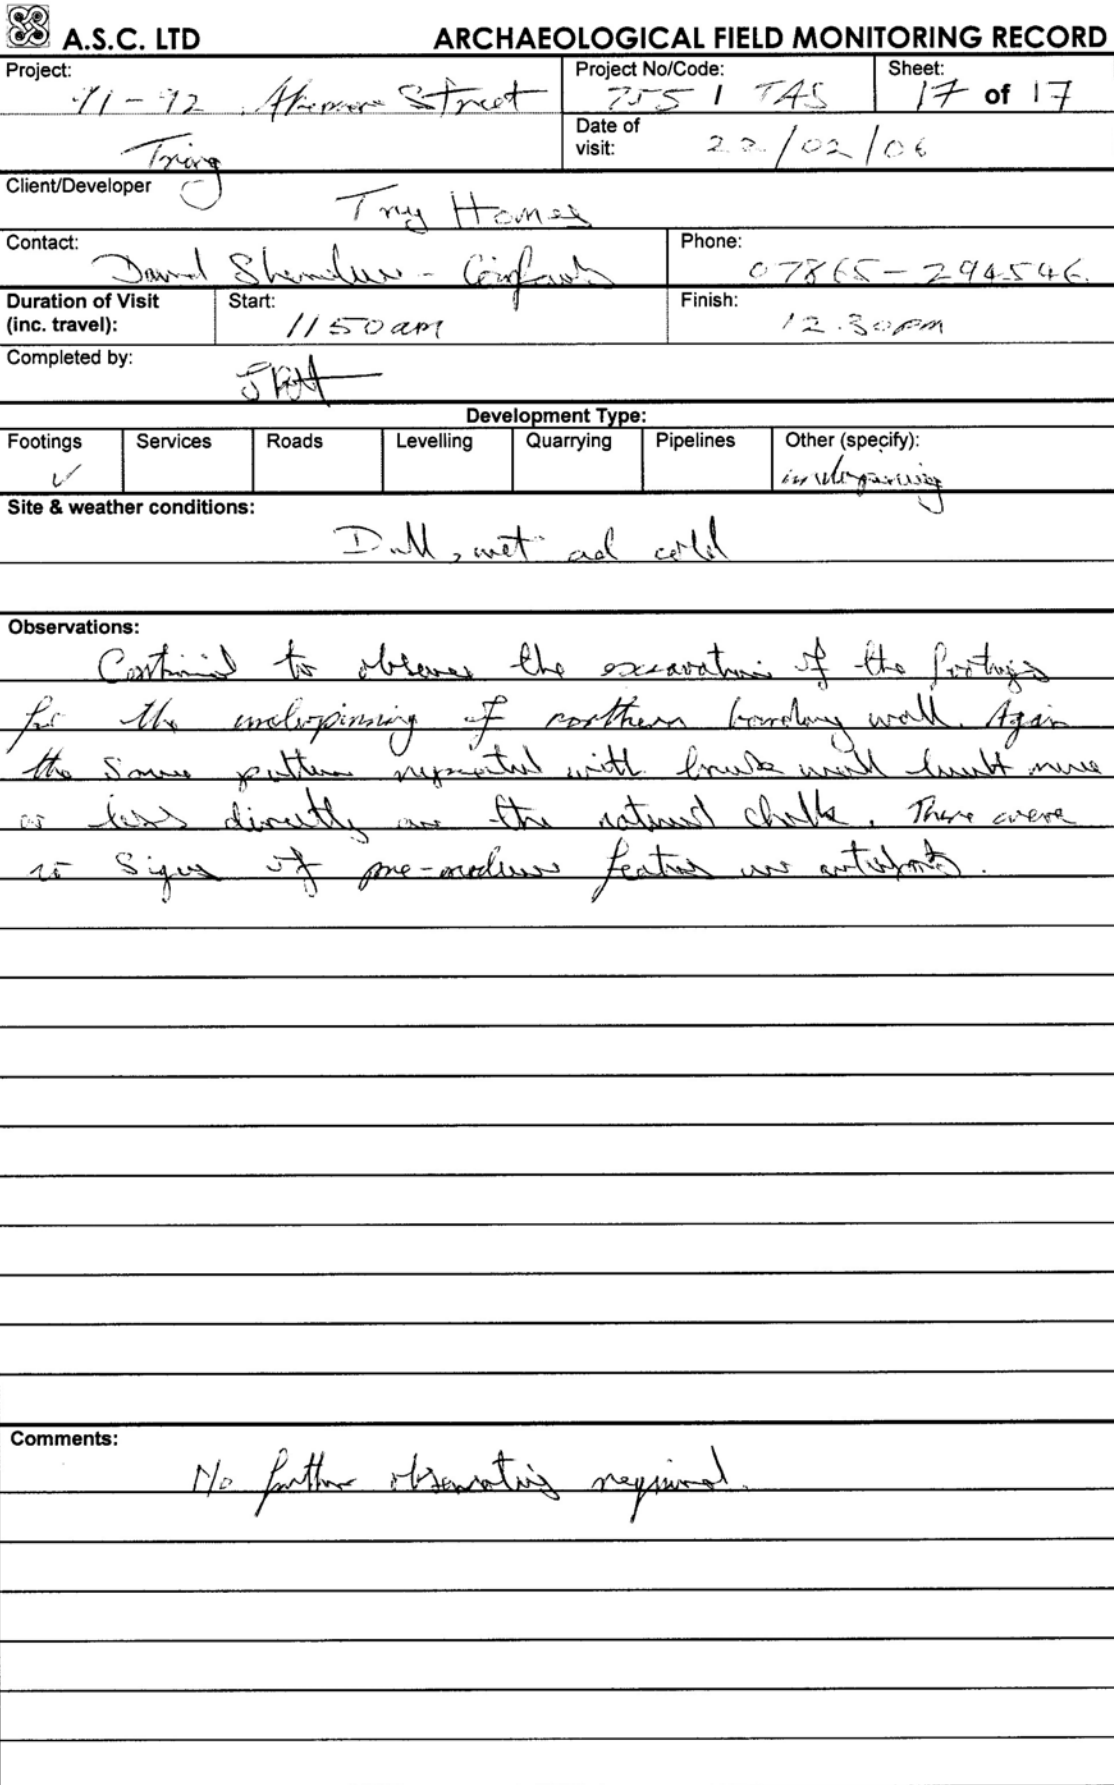 A.S.C. LTD ARCHAEOLOGICAL FIELD MONITORING RECORD
Project: Project No/Code: Sheet:
Street 755 / TAS 17 of 17
Date of
visit: 22/02/06
Tring
Client/Developer
Try Homes
Contact: Phone:
David 07865-294546
Duration of Visit Start: Finish:
(inc. travel): 1150am 12.30pm
Completed by:
Development Type:
Footings Services Roads Levelling Quarrying Pipelines Other (specify):
✓ underpinning
Site & weather conditions:
Dull, wet and cold
Observations:
Continued to observe the excavation of the footings
for the underpinning of northern boundary wall. Again
the same pattern repeated with brick wall built more
or less directly on the natural chalk. There were
no signs of pre-modern features or artefacts.
Comments:
No further observations required.